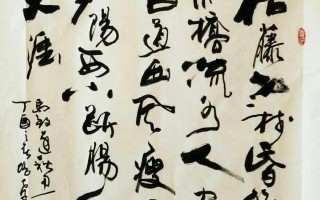 枯藤老树昏
桥流水人
古道西风瘦
阳西下断肠
天涯
马致远秋思
丁酉